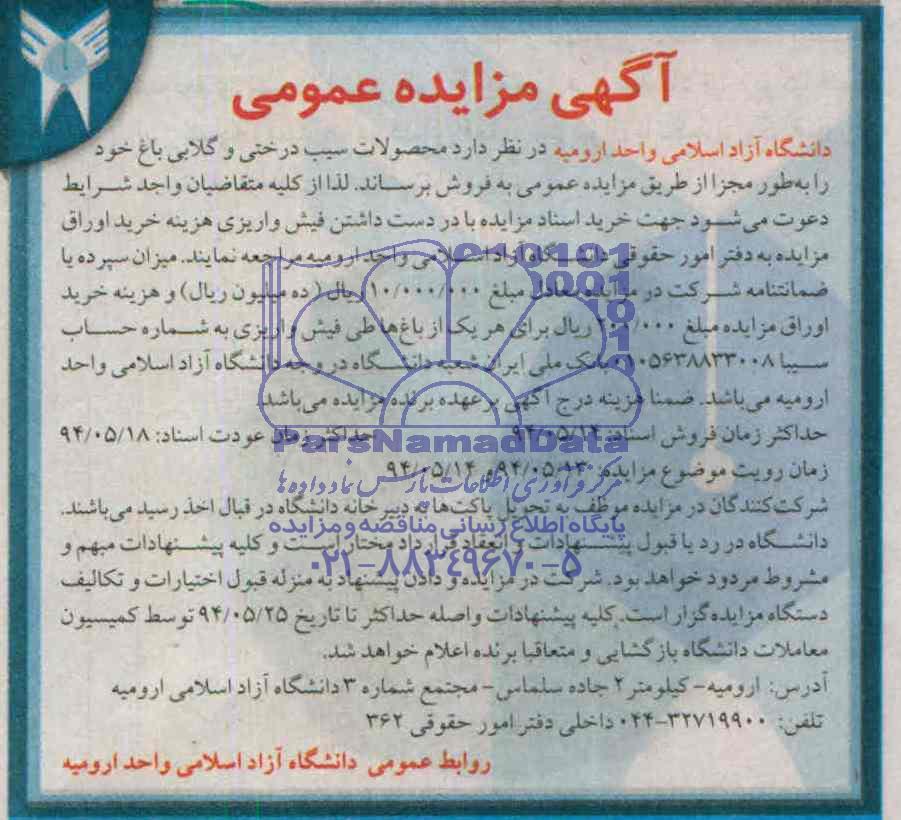 آگهی مزایده عمومی
دانشگاه آزاد اسلامی واحد ارومیه در نظر دارد محصولات سیب درختی و گلابی باغ خود
را به‌طور مجزا از طریق مزایده عمومی به فروش برساند. لذا از کلیه متقاضیان واجد شرایط
دعوت می‌شود جهت خرید اسناد مزایده با در دست داشتن فیش واریزی هزینه خرید اوراق
مزایده به دفتر امور حقوقی دانشگاه آزاد اسلامی واحد ارومیه مراجعه نمایند. میزان سپرده یا
ضمانتنامه شرکت در مزایده معادل مبلغ ۱۰/۰۰۰/۰۰۰ ریال (ده میلیون ریال) و هزینه خرید
اوراق مزایده مبلغ ریال برای هر یک از باغ‌ها طی فیش واریزی به شماره حساب
سیبا بانک ملی ایران شعبه دانشگاه در وجه دانشگاه آزاد اسلامی واحد
ارومیه می‌باشد. ضمنا هزینه درج آگهی برعهده برنده مزایده می‌باشد
حداکثر زمان فروش اسناد: ۹۴/۰۵/۱۴ حداکثر زمان عودت اسناد: ۹۴/۰۵/۱۸
زمان رویت موضوع مزایده: ۹۴/۰۵/۱۳ و ۹۴/۰۵/۱۴
شرکت‌کنندگان در مزایده موظف به تحویل پاکت‌ها به دبیرخانه دانشگاه در قبال اخذ رسید می‌باشند.
دانشگاه در رد یا قبول پیشنهادات و انعقاد قرارداد مختار است و کلیه پیشنهادات مبهم و
مشروط مردود خواهد بود. شرکت در مزایده و دادن پیشنهاد به منزله قبول اختیارات و تکالیف
دستگاه مزایده‌گزار است. کلیه پیشنهادات واصله حداکثر تا تاریخ ۹۴/۰۵/۲۵ توسط کمیسیون
معاملات دانشگاه بازگشایی و متعاقبا برنده اعلام خواهد شد.
آدرس: ارومیه- کیلومتر ۲ جاده سلماس- مجتمع شماره ۳ دانشگاه آزاد اسلامی ارومیه
تلفن: ۳۲۷۱۹۹۰۰-۰۴۴ داخلی دفتر امور حقوقی ۳۶۲
روابط عمومی دانشگاه آزاد اسلامی واحد ارومیه
ParsNamadData
مرکز فرآوری اطلاعات پارس نماد داده‌ها
پایگاه اطلاع رسانی مناقصه و مزایده
۰۲۱-۸۸۳۴۹۶۷۰-۵